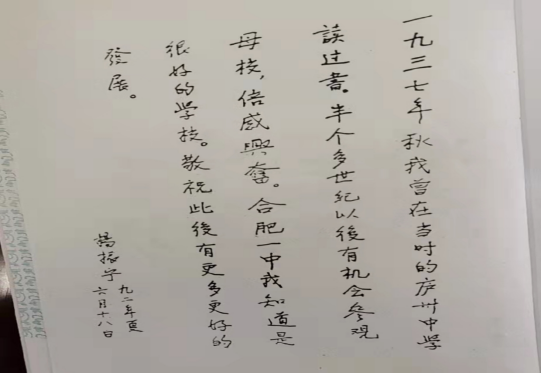 一九三七年秋我曾在当时的庐州中学
读过书。半个多世纪以後有机会參观
母校，倍感興奮。合肥一中我知道是
很好的学校。敬祝此後有更多更好的
發展。
楊振宁 九二年夏
六月十八日